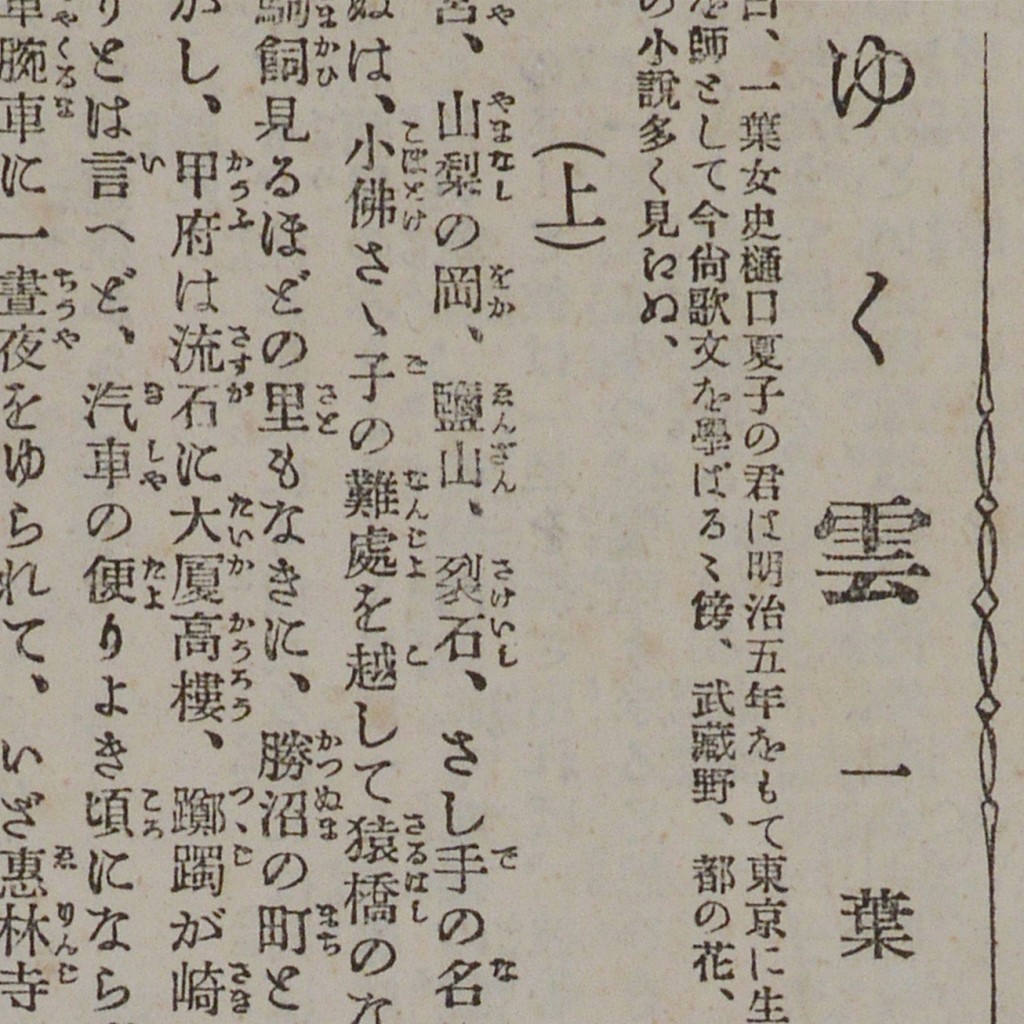 ゆく雲 一葉
一葉女史樋口夏子の君は明治五年をもて東京に生
師として今尙歌文を學ばるゝ傍、武藏野、都の花、
の小說多く見いぬ、
(上)
、山梨の岡、鹽山、裂石、さし手の名
ぬは、小佛さゝ子の難處を越して猿橋のな
飼見るほどの里もなきに、勝沼の町と
がし、甲府は流石に大厦高樓、躑躅が崎
りとは言へど、汽車の便りよき頃になら
車腕車に一晝夜をゆられて、いざ惠林寺